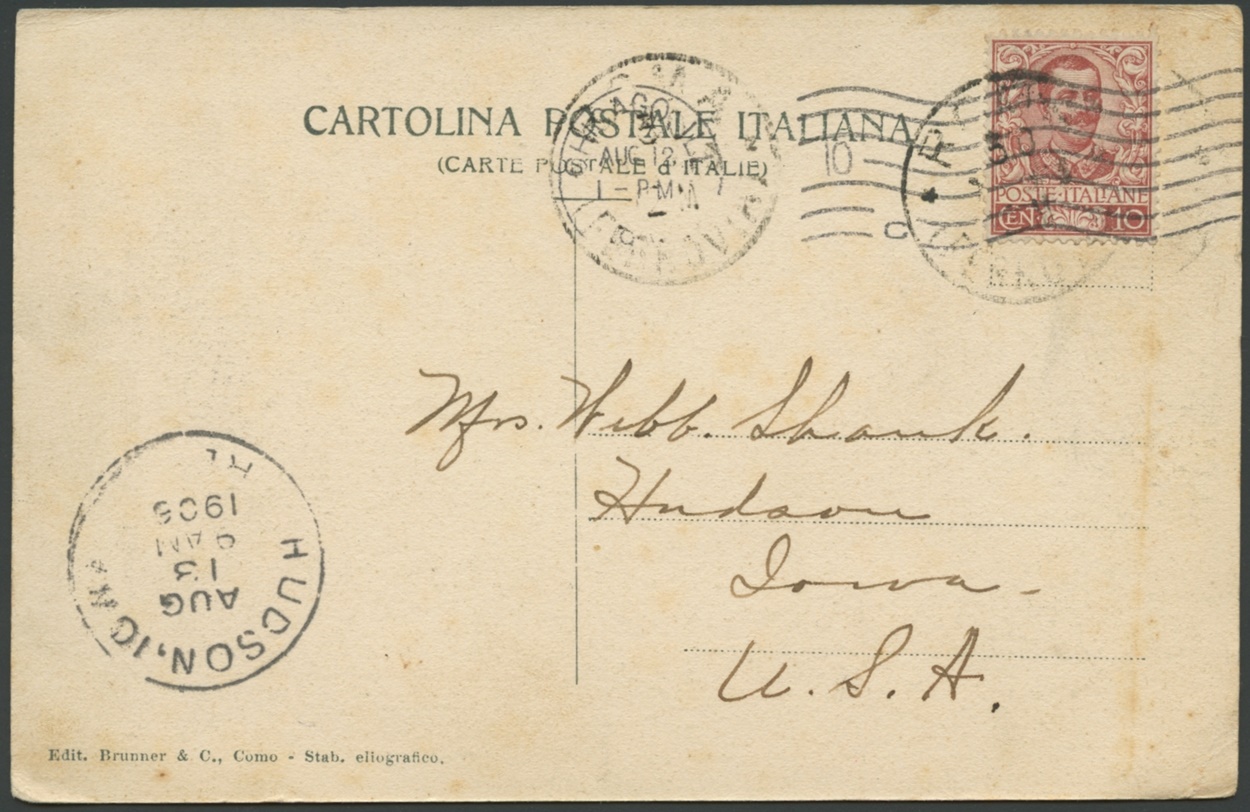 CARTOLINA POSTALE ITALIANA
(CARTE POSTALE d'ITALIE)
CHICAGO
AUG 12
1-PM
10
C
30
POSTE·ITALIANE
CEN. 10
Mrs. Webb. Shank.
Hudson
Iowa.
U. S. A.
HUDSON, IOWA
AUG
13
9 AM
1906
Edit. Brunner & C., Como - Stab. eliografico.